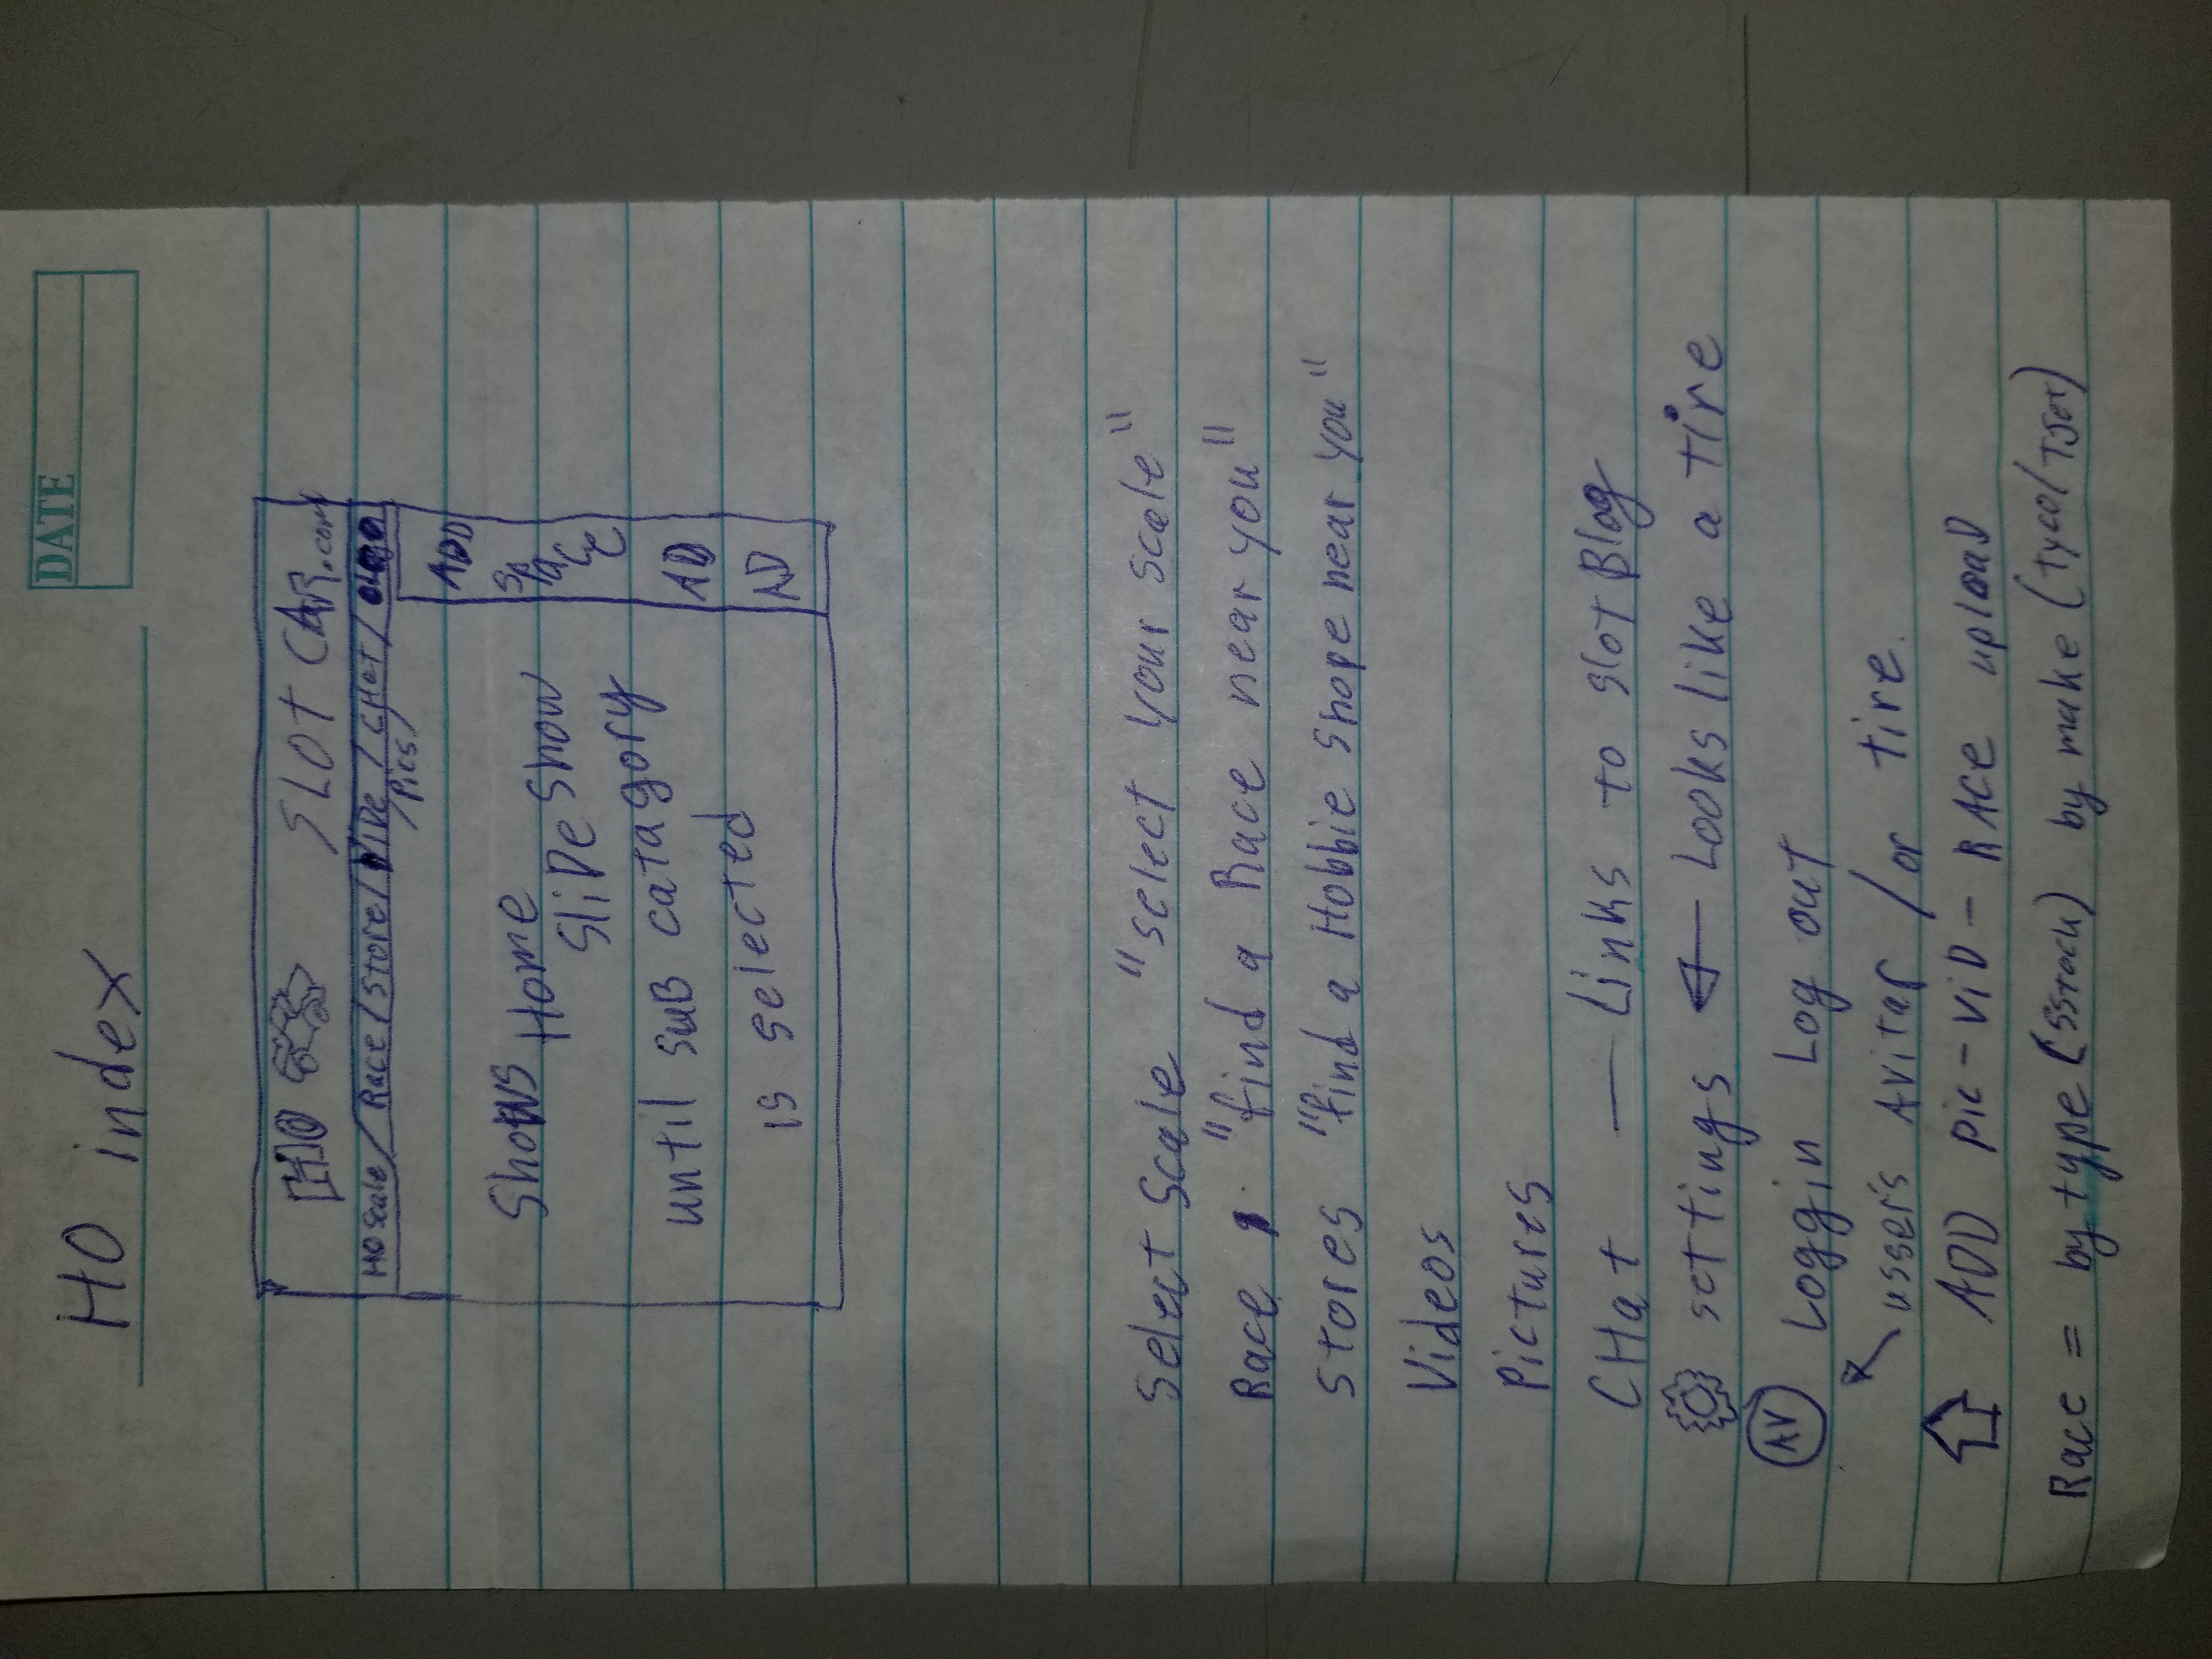 HO index
DATE
HO SLOT CAR.com
HO Scale / Race / Store / ViDe / CHat /
/Pics/
ADD
SPACE
AD
AD
Shows Home
SliDe Show
until suB catagory
is selected
Select Scale "select your scale"
Race "find a Race near you"
Stores "find a Hobbie Shope near you"
Videos
Pictures
CHat — Links to slot Blog
settings ← Looks like a tire
AV Loggin Log out
usser's Avitar / or tire.
ADD pic - ViD - RACe uploaD
Race = by type (SStock) by make (Tyco/TJet)